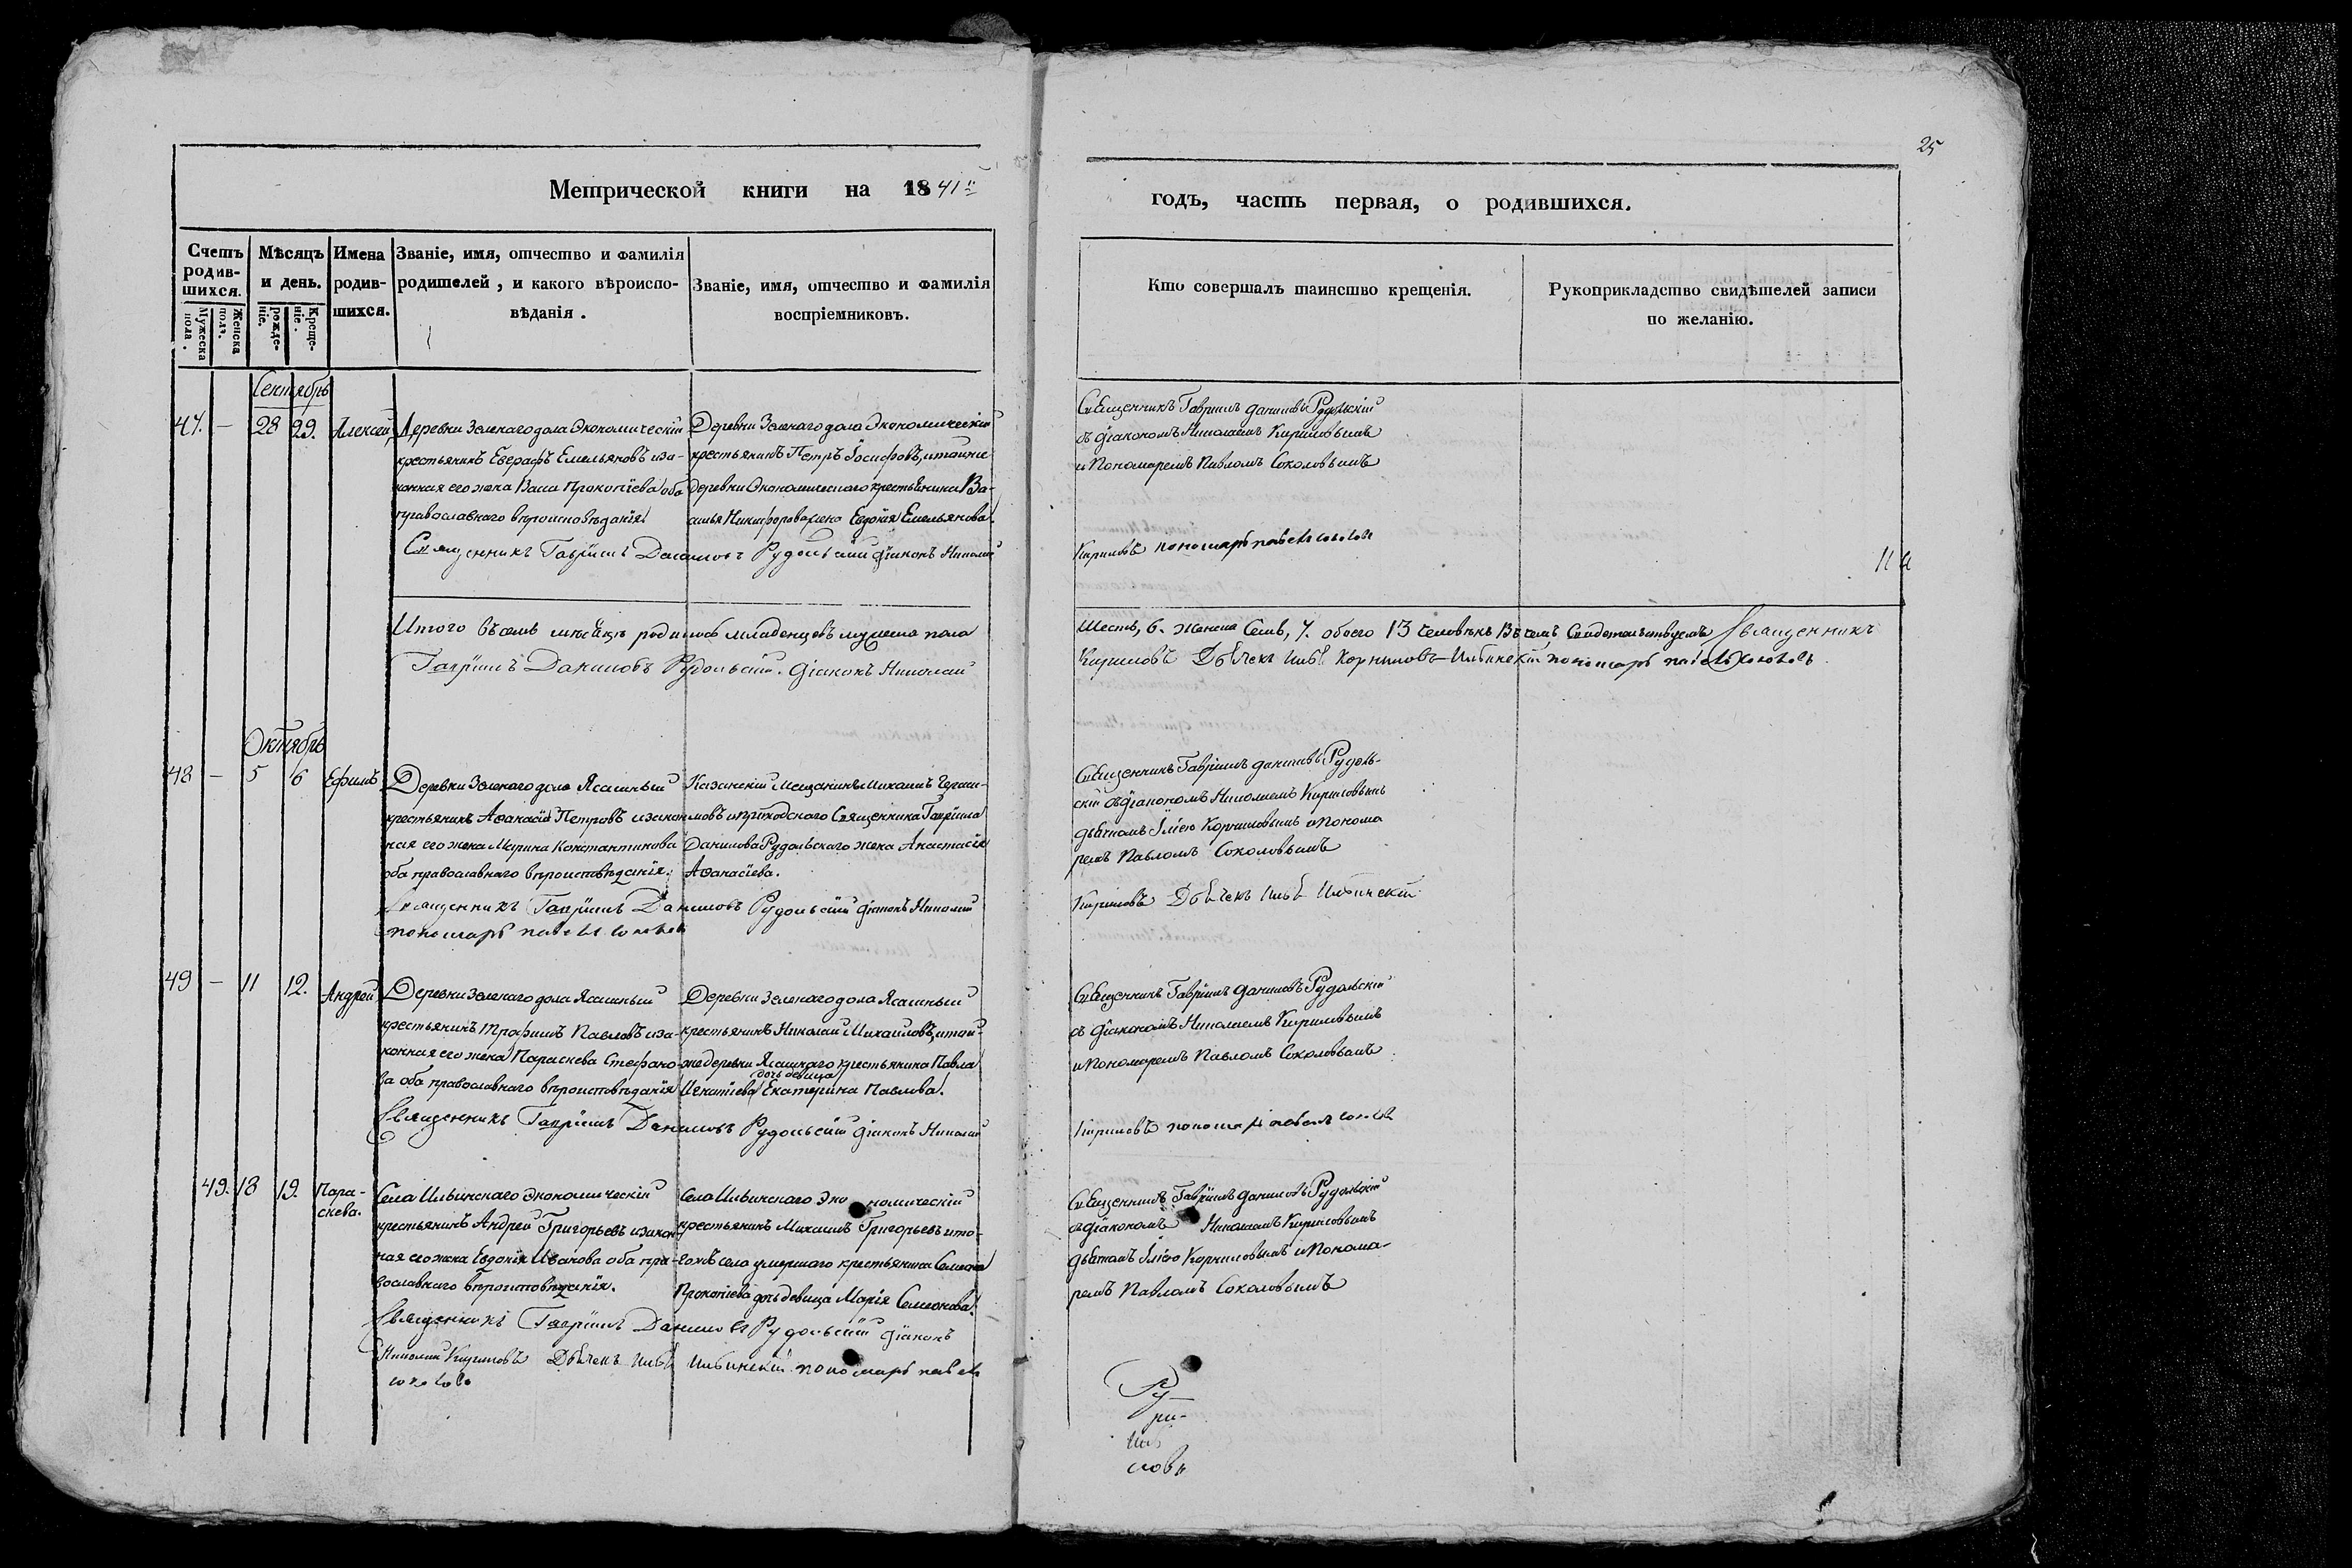 25
Метрической книги на 1841й
годъ, часть первая, о родившихся.
Счетъ родившихся.
Мужеска пола.
Женска полъ.
Мѣсяцъ и день.
рожденіе.
Крещеніе.
Имена родившихся.
Званіе, имя, отчество и фамилія
родителей, и какого вѣроиспо-
вѣданія.
Званіе, имя, отчество и фамилія
воспріемниковъ.
Кто совершалъ таинство крещенія.
Рукоприкладство свидѣтелей записи
по желанію.
Сентябрь
47. — 28 29. Алексѣй
Деревни Зеленаго дола Экономическій
крестьянинъ Евграфъ Емельяновъ и за-
конная его жена Васса Прокопіева оба
православнаго вѣроисповѣданія
Деревни Зеленаго дола Экономическій
крестьянинъ Петръ Іосифовъ, и тойже
деревни Экономическаго крестьянина Ва-
силья Никифорова жена Евдокія Емельянова.
Священникъ Гавріилъ Даниловъ Рудольскій
съ діакономъ Николаемъ Кириловымъ
и Пономаремъ Павломъ Соколовымъ
Священникъ Гавріилъ Даниловъ Рудольскій діаконъ Николай
Кириловъ пономарь Павелъ Соколовъ
Итого въ семъ мѣсяцѣ родилось младенцевъ мужеска пола
Шесть, 6. женска Семь, 7. обоего 13 человѣкъ Въ чемъ Свидетельствуемъ Священникъ
Гавріилъ Даниловъ Рудольскій. Діаконъ Николай
Кириловъ Дьячекъ Илья Корниловъ Ильинскій пономарь Павелъ Соколовъ
Октябрь
48 — 5 6 Ефимъ
Деревни Зеленаго дола Ясашный
крестьянинъ Аѳанасій Петровъ и закон-
ная его жена Марина Константинова
оба православнаго вѣроисповѣданія.
Казанскій Мещанинъ Михаилъ
и приходскаго Священника Гавріила
Данилова Рудольскаго жена Анастасія
Аѳанасіева.
Священникъ Гавріилъ Даниловъ Рудоль-
скій съ діакономъ Николаемъ Кириловымъ
дьячкомъ Ильею Корниловымъ и Понома
ремъ Павломъ Соколовымъ
Священникъ Гавріилъ Даниловъ Рудольскій діаконъ Николай
Кириловъ Дьячекъ Илья Ильинскій
пономарь Павелъ Соколовъ
49 — 11 12. Андрей
Деревни Зеленаго дола Ясашный
крестьянинъ Трофимъ Павловъ и за-
конная его жена Параскева Стефано-
ва оба православнаго вѣроисповѣданія
Деревни Зеленаго дола Ясашный
крестьянинъ Николай Михаиловъ, и той-
же деревни Ясашнаго крестьянина Павла
дочь девица
Игнатіева Екатерина Павлова.
Священникъ Гавріилъ Даниловъ Рудольскій
съ діакономъ Николаемъ Кириловымъ
и Пономаремъ Павломъ Соколовымъ
Священникъ Гавріилъ Даниловъ Рудольскій діаконъ Николай
Кириловъ пономарь Павелъ Соколовъ
49. 18 19. Пара-
скева.
Села Ильинскаго Экономическій
крестьянинъ Андрей Григорьевъ и закон-
ная его жена Евдокія Иванова оба пра-
вославнаго вѣроисповѣданія.
Села Ильинскаго Экономическій
крестьянинъ Михаилъ Григорьевъ и то-
гожъ села умершаго крестьянина Семена
Прокопіева дочь девица Марія Семенова.
Священникъ Гавріилъ Даниловъ Рудольскій
съ діакономъ Николаемъ Кириловымъ
дьячкомъ Ильею Корниловымъ и Понома-
ремъ Павломъ Соколовымъ
Священникъ Гавріилъ Даниловъ Рудольскій діаконъ
Николай Кириловъ Дьячекъ Илья Ильинскій пономарь Павелъ
Соколовъ
Ру-
ри-
словъ